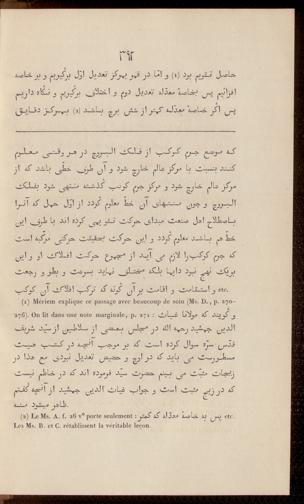 ١٣٩٢
حاصل تقویم بود (1) و امّا در قمر بمرکز تعدیل اوّل برگیریم و بر خاصه
افزائیم پس بخاصهٔ معدّله تعدیل دوم و اختلاف برگیریم و نگاه داریم
پس اگر خاصهٔ معدّله کمتر از شش برج باشد (2) بمرکز دقایق
که موضع جرم کوکب از فلک البروج در هر وقتی معلوم
کنند نسبت با مرکز عالم خارج شود و آن طرف خطّی باشد که از
مرکز عالم خارج شود و مرکز جرم کوکب گذشته منتهی شود بفلک
البروج و چون منتهای آن خطّ معلوم گردد از اوّل حمل که آنرا
باصطلاح اهل صنعت مبدای حرکت تقویمی کرده اند با طرف این
خطّ هم باشد معلوم گردد و این حرکت بحقیقت حرکتی مرکّبه است
که جرم کوکب را لازم می آید از مجموع حرکت افلاک او و این
بریک نهج نبود دایما بلکه مختلف نماید بسرعت و بطو و رجعت
و استقامت و اقامت بر آن گونه که ترکب افلاک آن کوکب etc.
(1) Mériem explique ce passage avec beaucoup de soin (Ms. D., p. 270-
276). On lit dans une note marginale, p. 271 : و گویند که مولانا غیاث
الدین جمشید رحمه الله در مجلس بعضی از سلاطین از سیّد شریف
قدّس سرّه سوال کرده است که بر موجب آنچه در کتب هیئت
مسطورست می باید که در اوج و حضیض تعدیل نبودی مع هذا در
زیجات مثبّت می بینم حضرت سیّد فرموده اند که در خاطرم نیست
که در زیج مثبت است و جواب غیاث الدین جمشید از آنچه گفتم
ظاهر میشود منه
(2) Le Ms. A. f. 26 v° porte seulement : پس به خاصهٔ معدّله که کمتر etc.
Les Ms. B. et C. rétablissent la véritable leçon.